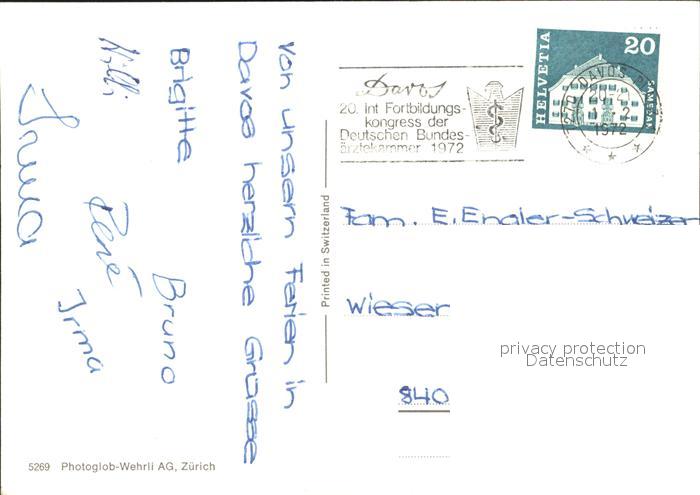 Von unsern Ferien in
Davos herzliche Grüsse
Brigitte
Bruno
Willi
René
Irma
Printed in Switzerland
5269 Photoglob-Wehrli AG, Zürich
Davos
20. Int Fortbildungs-
kongress der
Deutschen Bundes-
ärztekammer 1972
HELVETIA
20
SAMEDAN
DAVOS
1972
Fam. E. Engler-Schweizer
Wieser
privacy protection
Datenschutz
840